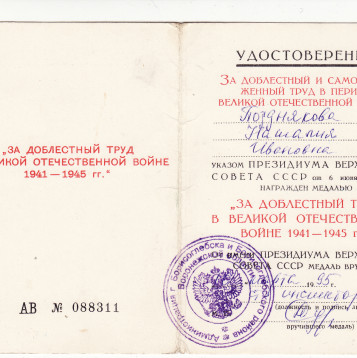 „ЗА ДОБЛЕСТНЫЙ ТРУД
ИКОЙ ОТЕЧЕСТВЕННОЙ ВОЙНЕ
1941—1945 гг.“
АВ № 088311
УДОСТОВЕРЕН
ЗА ДОБЛЕСТНЫЙ И САМО
ЖЕННЫЙ ТРУД В ПЕРИ
ВЕЛИКОЙ ОТЕЧЕСТВЕННОЙ
Позднякова
Наталия
Ивановна
УКАЗОМ ПРЕЗИДИУМА ВЕРХ
СОВЕТА СССР от 6 июн
НАГРАЖДЕН МЕДАЛЬЮ
„ЗА ДОБЛЕСТНЫЙ Т
В ВЕЛИКОЙ ОТЕЧЕСТВЕ
ВОЙНЕ 1941—1945 г
ПРЕЗИДИУМА ВЕРХ
СОВЕТА СССР МЕДАЛЬ ВРУ
марта 1995
(должность и подпись
вручившего медаль)
Администрация г. Борисоглебска и района Воронежской